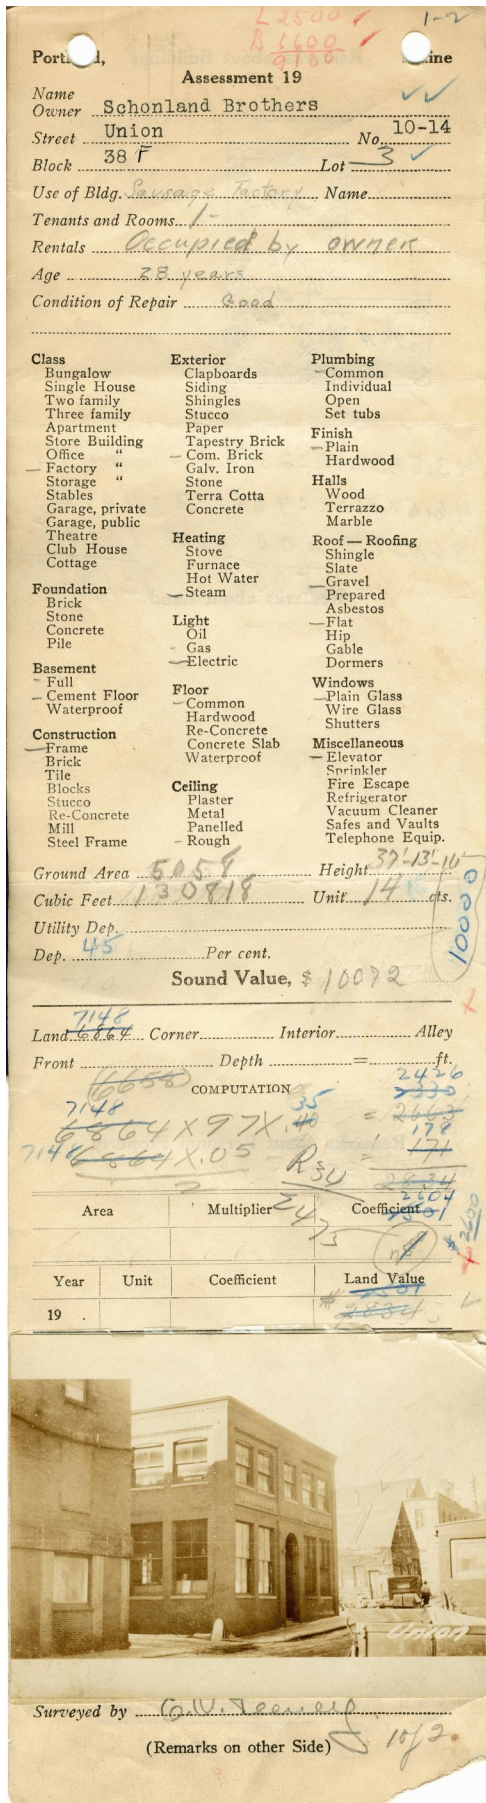 L 2500
1-2
B 6600
9100
Portl d, ine
Assessment 19
Name
Owner Schonland Brothers
Street Union No. 10-14
Block 38 F Lot 3
Use of Bldg. Sausage Factory Name
Tenants and Rooms 1-
Rentals Occupied by owner
Age 28 years
Condition of Repair Good
Class
Bungalow
Single House
Two family
Three family
Apartment
Store Building
Office "
Factory "
Storage "
Stables
Garage, private
Garage, public
Theatre
Club House
Cottage
Foundation
Brick
Stone
Concrete
Pile
Basement
Full
Cement Floor
Waterproof
Construction
Frame
Brick
Tile
Blocks
Stucco
Re-Concrete
Mill
Steel Frame
Exterior
Clapboards
Siding
Shingles
Stucco
Paper
Tapestry Brick
Com. Brick
Galv. Iron
Stone
Terra Cotta
Concrete
Heating
Stove
Furnace
Hot Water
Steam
Light
Oil
Gas
Electric
Floor
Common
Hardwood
Re-Concrete
Concrete Slab
Waterproof
Ceiling
Plaster
Metal
Panelled
Rough
Plumbing
Common
Individual
Open
Set tubs
Finish
Plain
Hardwood
Halls
Wood
Terrazzo
Marble
Roof — Roofing
Shingle
Slate
Gravel
Prepared
Asbestos
Flat
Hip
Gable
Dormers
Windows
Plain Glass
Wire Glass
Shutters
Miscellaneous
Elevator
Sprinkler
Fire Escape
Refrigerator
Vacuum Cleaner
Safes and Vaults
Telephone Equip.
Ground Area 5058 Height 37-13-16
Cubic Feet 130818 Unit 14 cts.
10000
Utility Dep.
Dep. 45 Per cent.
Sound Value, $ 10072
7148
Land 6864 Corner Interior Alley
Front Depth = ft.
(6658) 2426
COMPUTATION 2330
7148 35
6864 X 97 X .40 = 2663
178
7148 6864 X .05 = 171
R 34 2834
2604
Area Multiplier Coefficient
2475
2600
Year Unit Coefficient Land Value
2501
19 . 2834
Union
Surveyed by
(Remarks on other Side)
1 of 2.